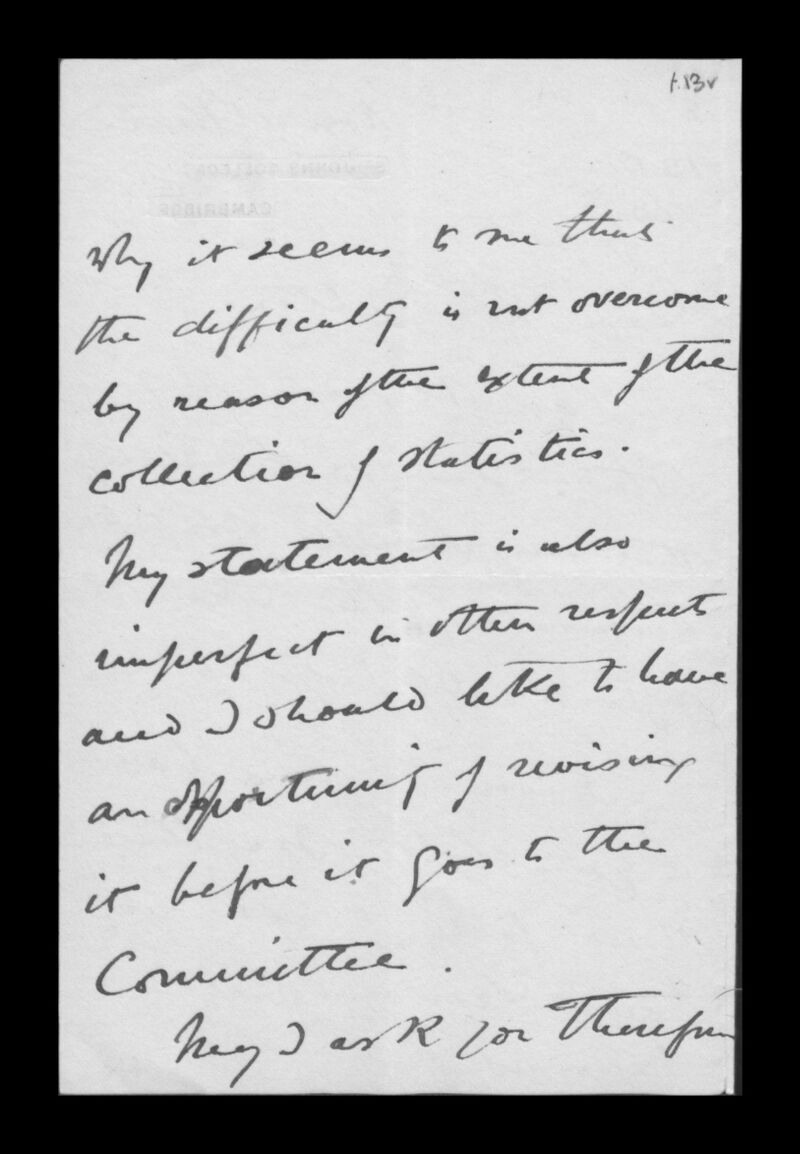 f.13v
why it seems to me that
the difficulty is not overcome
by reason of the extent of the
collection of statistics.
My statement is also
imperfect in other respects
and I should like to have
an opportunity of revising
it before it goes to the
Committee.
May I ask you therefore